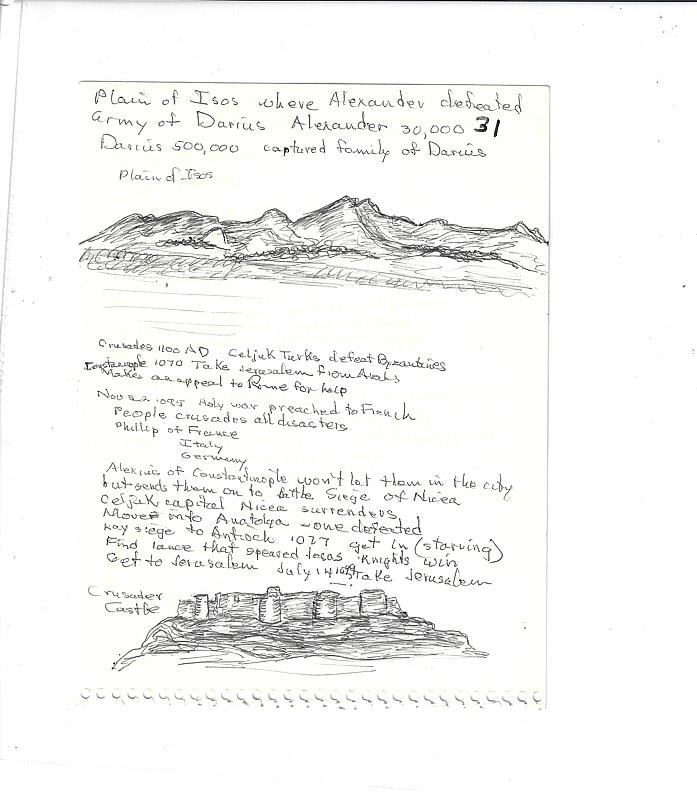 Plain of Isos where Alexander defeated
Army of Darius Alexander 30,000 31
Darius 500,000 captured family of Darius
Plain of Isos
Crusades 1100 AD Celjuk Turks defeat Byzantines
Constanople 1070 Take Jerusalem from Arabs
Makes an appeal to Rome for help
Nov 1095 Holy war preached to French
People crusades all disasters
Phillip of France
Italy
Germany
Alexius of Constantinople won't let them in the city
but sends them on to Siege of Nicea
Celjuk capital Nicea surrenders
Moves into Anatolya one defeated
Lay siege to Antioch get in (starving)
Find lance that speared Jesus Knights win
Get to Jerusalem July 14 Take Jerusalem
Crusader
Castle